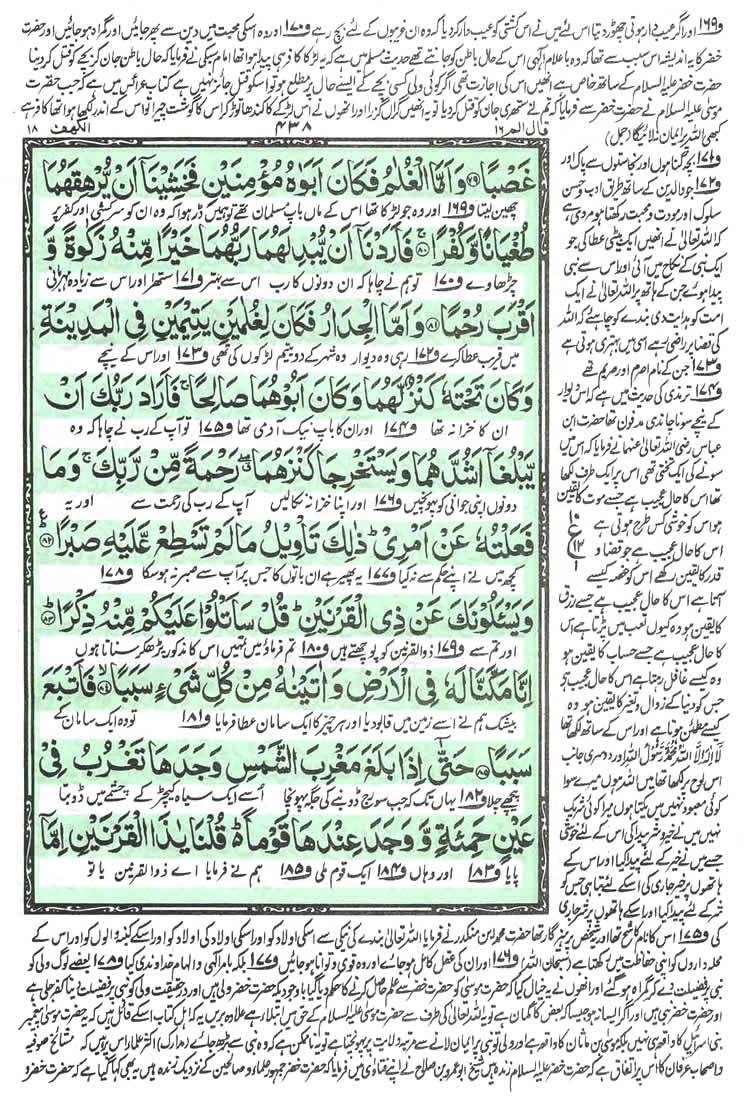 و۱۶۹ اور اگر عیب دار ہوتی چھوڑ دیتا اس لئے میں نے اس کشتی کو عیب دار کر دیا کہ وہ ان غریبوں کے لئے بچ رہے و۱۷۰ اور وہ اسکی محبت میں دین سے پھر جائیں اور گمراہ ہو جائیں اور حضرت
خضر کا یہ اندیشہ اس سبب سے تھا کہ وہ باعلام الٰہی اس کے حال باطن کو جانتے تھے حدیث مسلم میں ہے کہ یہ لڑکا کافر ہی پیدا ہوا تھا امام سبکی نے فرمایا کہ حال باطن جان کر بچے کو قتل کر دینا
حضرت خضر علیہ السلام کے ساتھ خاص ہے انھیں اس کی اجازت تھی اگر کوئی ولی کسی بچے کے ایسے حال پر مطلع ہو تو اسکو قتل جائز نہیں ہے کتاب عرائس میں ہے کہ جب حضرت
موسیٰ علیہ السلام نے حضرت خضر سے فرمایا کہ تم نے ستھری جان کو قتل کر دیا تو یہ انھیں گراں گزرا اور انھوں نے اس لڑکے کا کندھا توڑ کر اس کا گوشت چیرا تو اس کے اندر لکھا ہوا تھا کافر ہے
کبھی اللہ پر ایمان نہ لائیگا (جمل)
قال الم ۱۶
۴۳۸
الکھف ۱۸
غَصْبًا ﴿۷۹﴾ وَاَمَّا الْغُلٰمُ فَكَانَ اَبَوٰهُ مُؤْمِنَيْنِ فَخَشِيْنَاۤ اَنْ يُّرْهِقَهُمَا
چھین لیتا و۱۶۹ اور وہ جو لڑکا تھا اس کے ماں باپ مسلمان تھے تو ہمیں ڈر ہوا کہ وہ ان کو سرکشی اور کفر پر
طُغْيَانًا وَّكُفْرًا ﴿۸۰﴾ فَاَرَدْنَاۤ اَنْ يُّبْدِلَهُمَا رَبُّهُمَا خَيْرًا مِّنْهُ زَكٰوةً وَّ
چڑھاوے و۱۷۰ تو ہم نے چاہا کہ ان دونوں کا رب اس سے بہتر و۱۷۱ ستھرا اور اس سے زیادہ مہربانی
اَقْرَبَ رُحْمًا ﴿۸۱﴾ وَاَمَّا الْجِدَارُ فَكَانَ لِغُلٰمَيْنِ يَتِيْمَيْنِ فِی الْمَدِيْنَةِ
میں قریب عطا کرے و۱۷۲ رہی وہ دیوار وہ شہر کے دو یتیم لڑکوں کی تھی و۱۷۳ اور اس کے نیچے
وَكَانَ تَحْتَهٗ كَنْزٌ لَّهُمَا وَكَانَ اَبُوْهُمَا صَالِحًا ۚ فَاَرَادَ رَبُّكَ اَنْ
ان کا خزانہ تھا و۱۷۴ اور ان کا باپ نیک آدمی تھا و۱۷۵ تو آپ کے رب نے چاہا کہ وہ
يَّبْلُغَاۤ اَشُدَّهُمَا وَيَسْتَخْرِجَا كَنْزَهُمَا ۖ رَحْمَةً مِّنْ رَّبِّكَ ۚ وَمَا
دونوں اپنی جوانی کو پہونچیں و۱۷۶ اور اپنا خزانہ نکالیں آپ کے رب کی رحمت سے اور یہ
فَعَلْتُهٗ عَنْ اَمْرِیْ ؕ ذٰلِكَ تَاْوِيْلُ مَا لَمْ تَسْطِعْ عَّلَيْهِ صَبْرًا ﴿۸۲﴾
کچھ میں نے اپنے حکم سے نہ کیا و۱۷۷ یہ پھیر ہے ان باتوں کا جس پر آپ سے صبر نہ ہو سکا و۱۷۸
وَيَسْئَلُوْنَكَ عَنْ ذِی الْقَرْنَيْنِ ؕ قُلْ سَاَتْلُوْا عَلَيْكُمْ مِّنْهُ ذِكْرًا ﴿۸۳﴾
اور تم سے و۱۷۹ ذوالقرنین کو پوچھتے ہیں و۱۸۰ تم فرماؤ میں تمہیں اس کا مذکور پڑھ کر سناتا ہوں
اِنَّا مَكَّنَّا لَهٗ فِی الْاَرْضِ وَاٰتَيْنٰهُ مِنْ كُلِّ شَیْءٍ سَبَبًا ﴿۸۴﴾ فَاَتْبَعَ
بیشک ہم نے اسے زمین میں قابو دیا اور ہر چیز کا ایک سامان عطا فرمایا و۱۸۱ تو وہ ایک سامان کے
سَبَبًا ﴿۸۵﴾ حَتّٰۤی اِذَا بَلَغَ مَغْرِبَ الشَّمْسِ وَجَدَهَا تَغْرُبُ فِیْ
پیچھے چلا و۱۸۲ یہاں تک کہ جب سورج ڈوبنے کی جگہ پہونچا اُسے ایک سیاہ کیچڑ کے چشمے میں ڈوبتا
عَيْنٍ حَمِئَةٍ وَّوَجَدَ عِنْدَهَا قَوْمًا ؕ قُلْنَا يٰذَا الْقَرْنَيْنِ اِمَّاۤ
پایا و۱۸۳ اور وہاں و۱۸۴ ایک قوم ملی و۱۸۵ ہم نے فرمایا اے ذوالقرنین یا تو
و۱۷۱ بچہ گناہوں اور نجاستوں سے پاک اور
و۱۷۲ جو والدین کے ساتھ طریق ادب و حسن
سلوک اور مودت و محبت رکھتا ہو مروی ہے
کہ اللہ تعالیٰ نے انھیں ایک بیٹی عطا کی جو
ایک نبی کے نکاح میں آئی اور اس سے نبی
پیدا ہوئے جن کے ہاتھ پر اللہ تعالیٰ نے ایک
امت کو ہدایت دی بندے کو چاہئے کہ اللہ
کی قضا پر راضی رہے اسی میں بہتری ہوتی ہے
و۱۷۳ جن کے نام اصرم اور صریم تھے
و۱۷۴ ترمذی کی حدیث میں ہے کہ اس دیوار
کے نیچے سونا چاندی مدفون تھا حضرت ابن
عباس رضی اللہ تعالیٰ عنہما نے فرمایا کہ اس میں
سونے کی ایک تختی تھی اس پر ایک طرف لکھا
تھا اس کا حال عجیب ہے جسے موت کا یقین
ہو اس کو خوشی کس طرح ہوتی ہے
اس کا حال عجیب ہے جو قضا و
قدر کا یقین رکھے اس کو غصہ کیسے
آتا ہے اس کا حال عجیب ہے جسے رزق
کا یقین ہو وہ کیوں تعب میں پڑتا ہے اس
کا حال عجیب ہے جسے حساب کا یقین ہو
وہ کیسے غافل رہتا ہے اس کا حال عجیب ہے
جس کو دنیا کے زوال و تغیر کا یقین ہو وہ
کیسے مطمئن ہوتا ہے اور اس کے ساتھ لکھا تھا
لَا اِلٰهَ اِلَّا اللّٰهُ مُحَمَّدٌ رَّسُوْلُ اللّٰهِ اور دوسری جانب
اس لوح پر لکھا تھا میں اللہ ہوں میرے سوا
کوئی معبود نہیں میں یکتا ہوں میرا کوئی شریک
نہیں میں نے خیر و شر پیدا کی اس کے لئے خوشی
جسے میں نے خیر کے لئے پیدا کیا اور اس کے
ہاتھوں پر خیر جاری کی اسکے لئے تباہی جس کو
شر کے لئے پیدا کیا اور اسکے ہاتھوں پر شر جاری
ع ۱۰ ۱۲ ۱
کی و۱۷۵ اس کا نام کاشح تھا اور یہ شخص پرہیزگار تھا حضرت محمد ابن منکدر نے فرمایا اللہ تعالیٰ بندے کی نیکی سے اسکی اولاد کو اور اسکی اولاد کی اولاد کو اور اسکے کنبہ والوں کو اور اس کے
محلہ داروں کو اپنی حفاظت میں رکھتا ہے (سبحان اللہ) و۱۷۶ اور ان کی عقل کامل ہو جائے اور وہ قوی و توانا ہو جائیں و۱۷۷ بلکہ بامر الٰہی و الہام خداوندی کیا و۱۷۸ بعضے لوگ ولی کو
نبی پر فضیلت دے کر گمراہ ہو گئے اور انھوں نے یہ خیال کیا کہ حضرت موسیٰ کو حضرت خضر سے علم حاصل کرنے کا حکم دیا گیا باوجودیکہ حضرت خضر ولی ہیں اور درحقیقت ولی کو نبی پر فضیلت دینا کفر جلی ہے
اور حضرت خضر نبی ہیں اور اگر ایسا نہ ہو جیسا کہ بعض کا گمان ہے تو یہ اللہ تعالیٰ کی طرف سے حضرت موسیٰ علیہ السلام کے حق میں ابتلاء ہے علاوہ بریں یہ کہ اہل کتاب اسکے قائل ہیں کہ یہ حضرت موسیٰ پیغمبر
بنی اسرائیل کا واقعہ ہی نہیں بلکہ موسیٰ بن ماثان کا واقعہ ہے اور ولی تو نبی پر ایمان لانے سے مرتبۂ ولایت پر پہونچتا ہے تو یہ ناممکن ہے کہ وہ نبی سے بڑھ جائے (مدارک) اکثر علماء اس پر ہیں کہ مشائخ صوفیہ
و اصحاب عرفان کا اس پر اتفاق ہے کہ حضرت خضر علیہ السلام زندہ ہیں شیخ ابو عمرو بن صلاح نے اپنے فتاویٰ میں فرمایا کہ حضرت خضر جمہور علماء و صالحین کے نزدیک زندہ ہیں یہ بھی کہا گیا ہے کہ حضرت خضر و